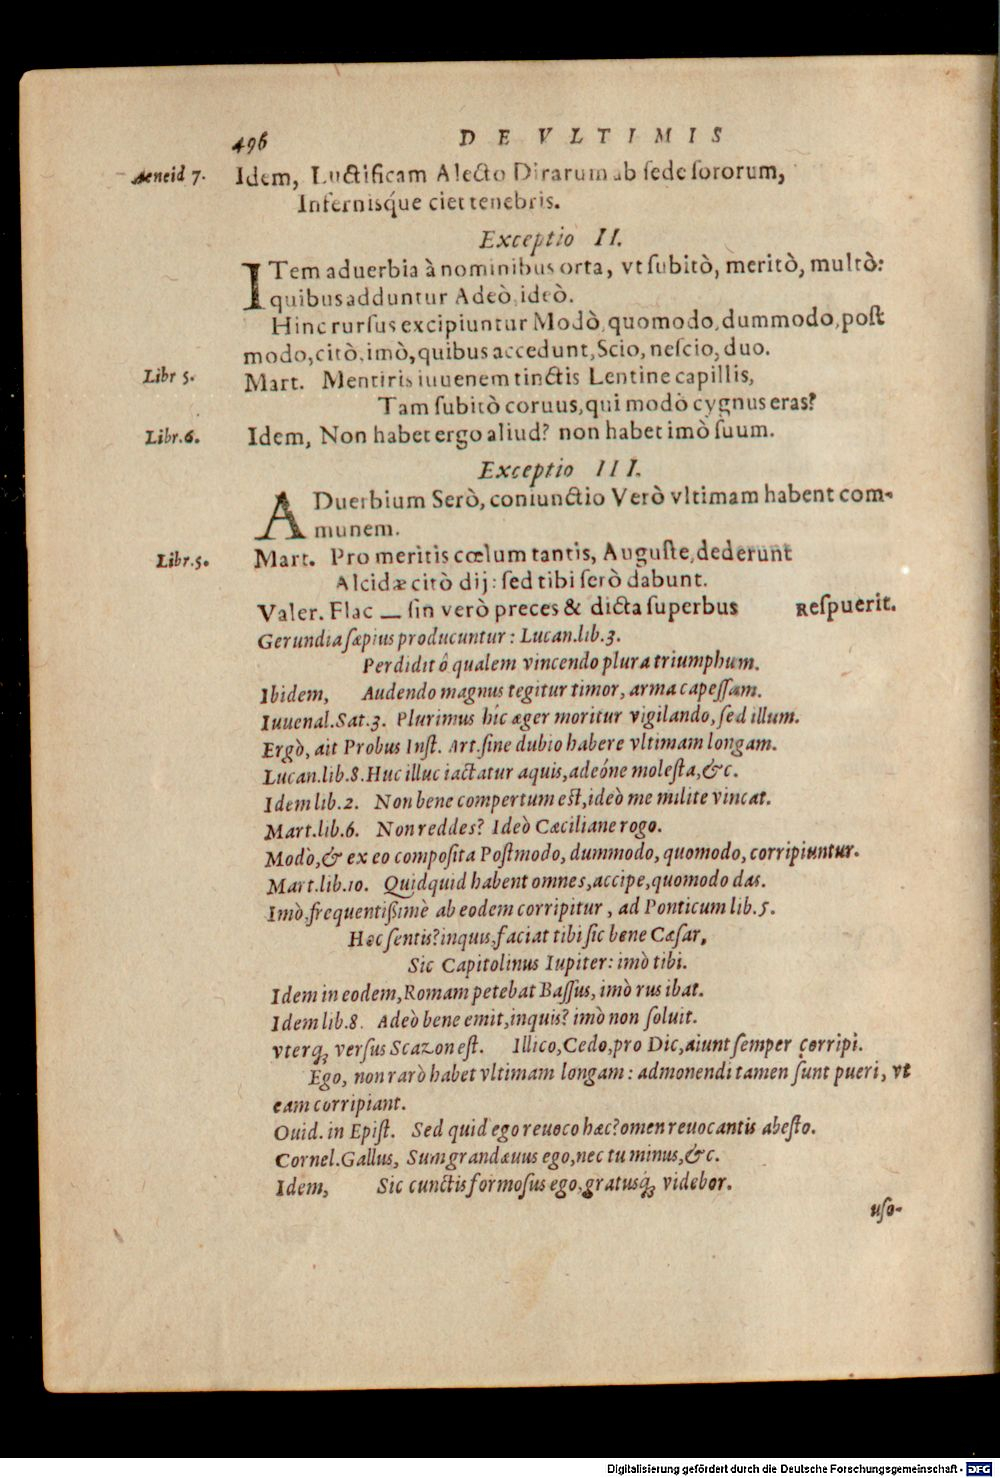 496 DE VLTIMIS
Aeneid 7. Idem, Luctificam Alecto Dirarum ab ſede ſororum,
Infernisq́ue ciet tenebris.
Exceptio II.
ITem aduerbia à nominibus orta, vt ſubitò, meritò, multò:
quibus adduntur Adeò, ideò.
Hinc rurſus excipiuntur Modò, quomodo, dummodo, poſt
modo, citò, imò, quibus accedunt, Scio, neſcio, duo.
Libr 5. Mart. Mentiris iuuenem tinctis Lentine capillis,
Tam ſubitò coruus, qui modò cygnus eras?
Libr.6. Idem, Non habet ergo aliud? non habet imò ſuum.
Exceptio III.
ADuerbium Serò, coniunctio Verò vltimam habent com-
munem.
Libr.5. Mart. Pro meritis cœlum tantis, Auguſte, dederunt
Alcidæ citò dij: ſed tibi ſerò dabunt.
Valer. Flac — ſin verò preces & dicta ſuperbus Reſpuerit.
Gerundia ſæpius producuntur: Lucan.lib.3.
Perdidit ô qualem vincendo plura triumphum.
Ibidem, Audendo magnus tegitur timor, arma capeſſam.
Iuuenal.Sat.3. Plurimus hîc æger moritur vigilando, ſed illum.
Ergò, ait Probus Inſt. Art.ſine dubio habere vltimam longam.
Lucan.lib.8.Huc illuc iactatur aquis, adeóne moleſta,&c.
Idem lib.2. Non bene compertum eſt, ideò me milite vincat.
Mart.lib.6. Non reddes? Ideò Cæciliane rogo.
Modò,& ex eo compoſita Poſtmodo, dummodo, quomodo, corripiuntur.
Mart.lib.10. Quidquid habent omnes, accipe, quomodo das.
Imò, frequentißimè ab eodem corripitur, ad Ponticum lib.5.
Hæc ſentis? inquis, faciat tibi ſic bene Cæſar,
Sic Capitolinus Iupiter: imò tibi.
Idem in eodem, Romam petebat Baſſus, imò rus ibat.
Idem lib.8. Adeò bene emit, inquis? imò non ſoluit.
vterq; verſus Scazon eſt. Illico, Cedo, pro Dic, aiunt ſemper corripi.
Ego, non rarò habet vltimam longam: admonendi tamen ſunt pueri, vt
eam corripiant.
Ouid. in Epiſt. Sed quid ego reuoco hæc? omen reuocantis abeſto.
Cornel.Gallus, Sum grandæuus ego, nec tu minus,&c.
Idem, Sic cunctis formoſus ego, gratusq́; videbor.
uſo-
Digitalisierung gefördert durch die Deutsche Forschungsgemeinschaft - DFG